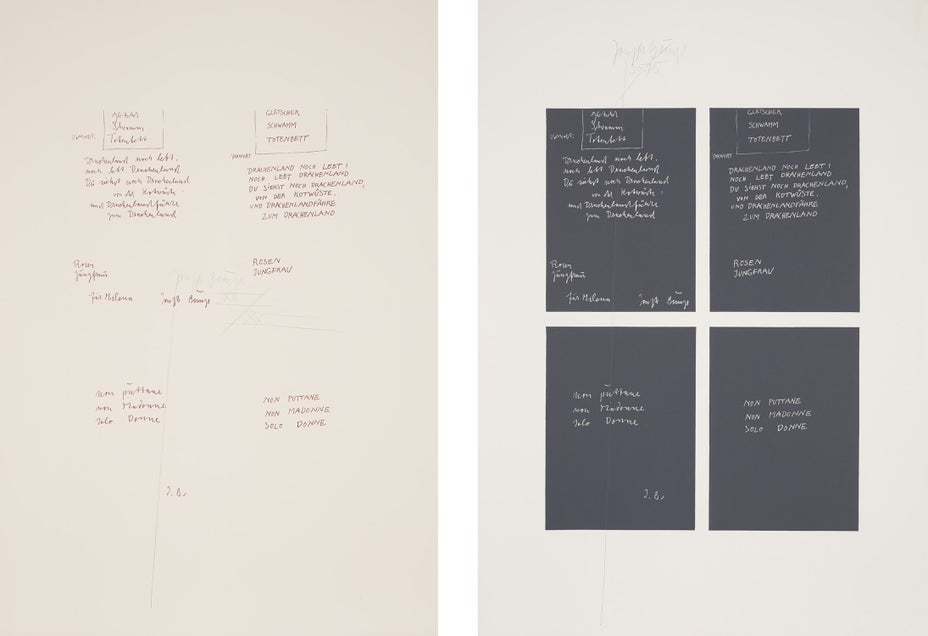 Gletscher
Schwamm
Totenbett
Vorwort:
Drachenland noch lebt,
noch lebt Drachenland
Du siehst noch Drachenland
von der Kotwüste
und Drachenlandfähre
zum Drachenland
Rosen
Jungfrau
für
Joseph Beuys
GLETSCHER
SCHWAMM
TOTENBETT
VORWORT
DRACHENLAND NOCH LEBT!
NOCH LEBT DRACHENLAND
DU SIEHST NOCH DRACHENLAND,
VON DER KOTWÜSTE.
UND DRACHENLANDFÄHRE
ZUM DRACHENLAND
ROSEN
JUNGFRAU
Joseph Beuys
non puttane
non Madonne
solo Donne
J. B.
NON PUTTANE
NON MADONNE
SOLO DONNE
Joseph Beuys
Gletscher
Schwamm
Totenbett
Vorwort:
Drachenland noch lebt,
noch lebt Drachenland
Du siehst noch Drachenland
von der Kotwüste
und Drachenlandfähre
zum Drachenland
Rosen
Jungfrau
für
Joseph Beuys
GLETSCHER
SCHWAMM
TOTENBETT
VORWORT
DRACHENLAND NOCH LEBT!
NOCH LEBT DRACHENLAND
DU SIEHST NOCH DRACHENLAND,
VON DER KOTWÜSTE.
UND DRACHENLANDFÄHRE
ZUM DRACHENLAND
ROSEN
JUNGFRAU
non puttane
non Madonne
solo Donne
J. B.
NON PUTTANE
NON MADONNE
SOLO DONNE